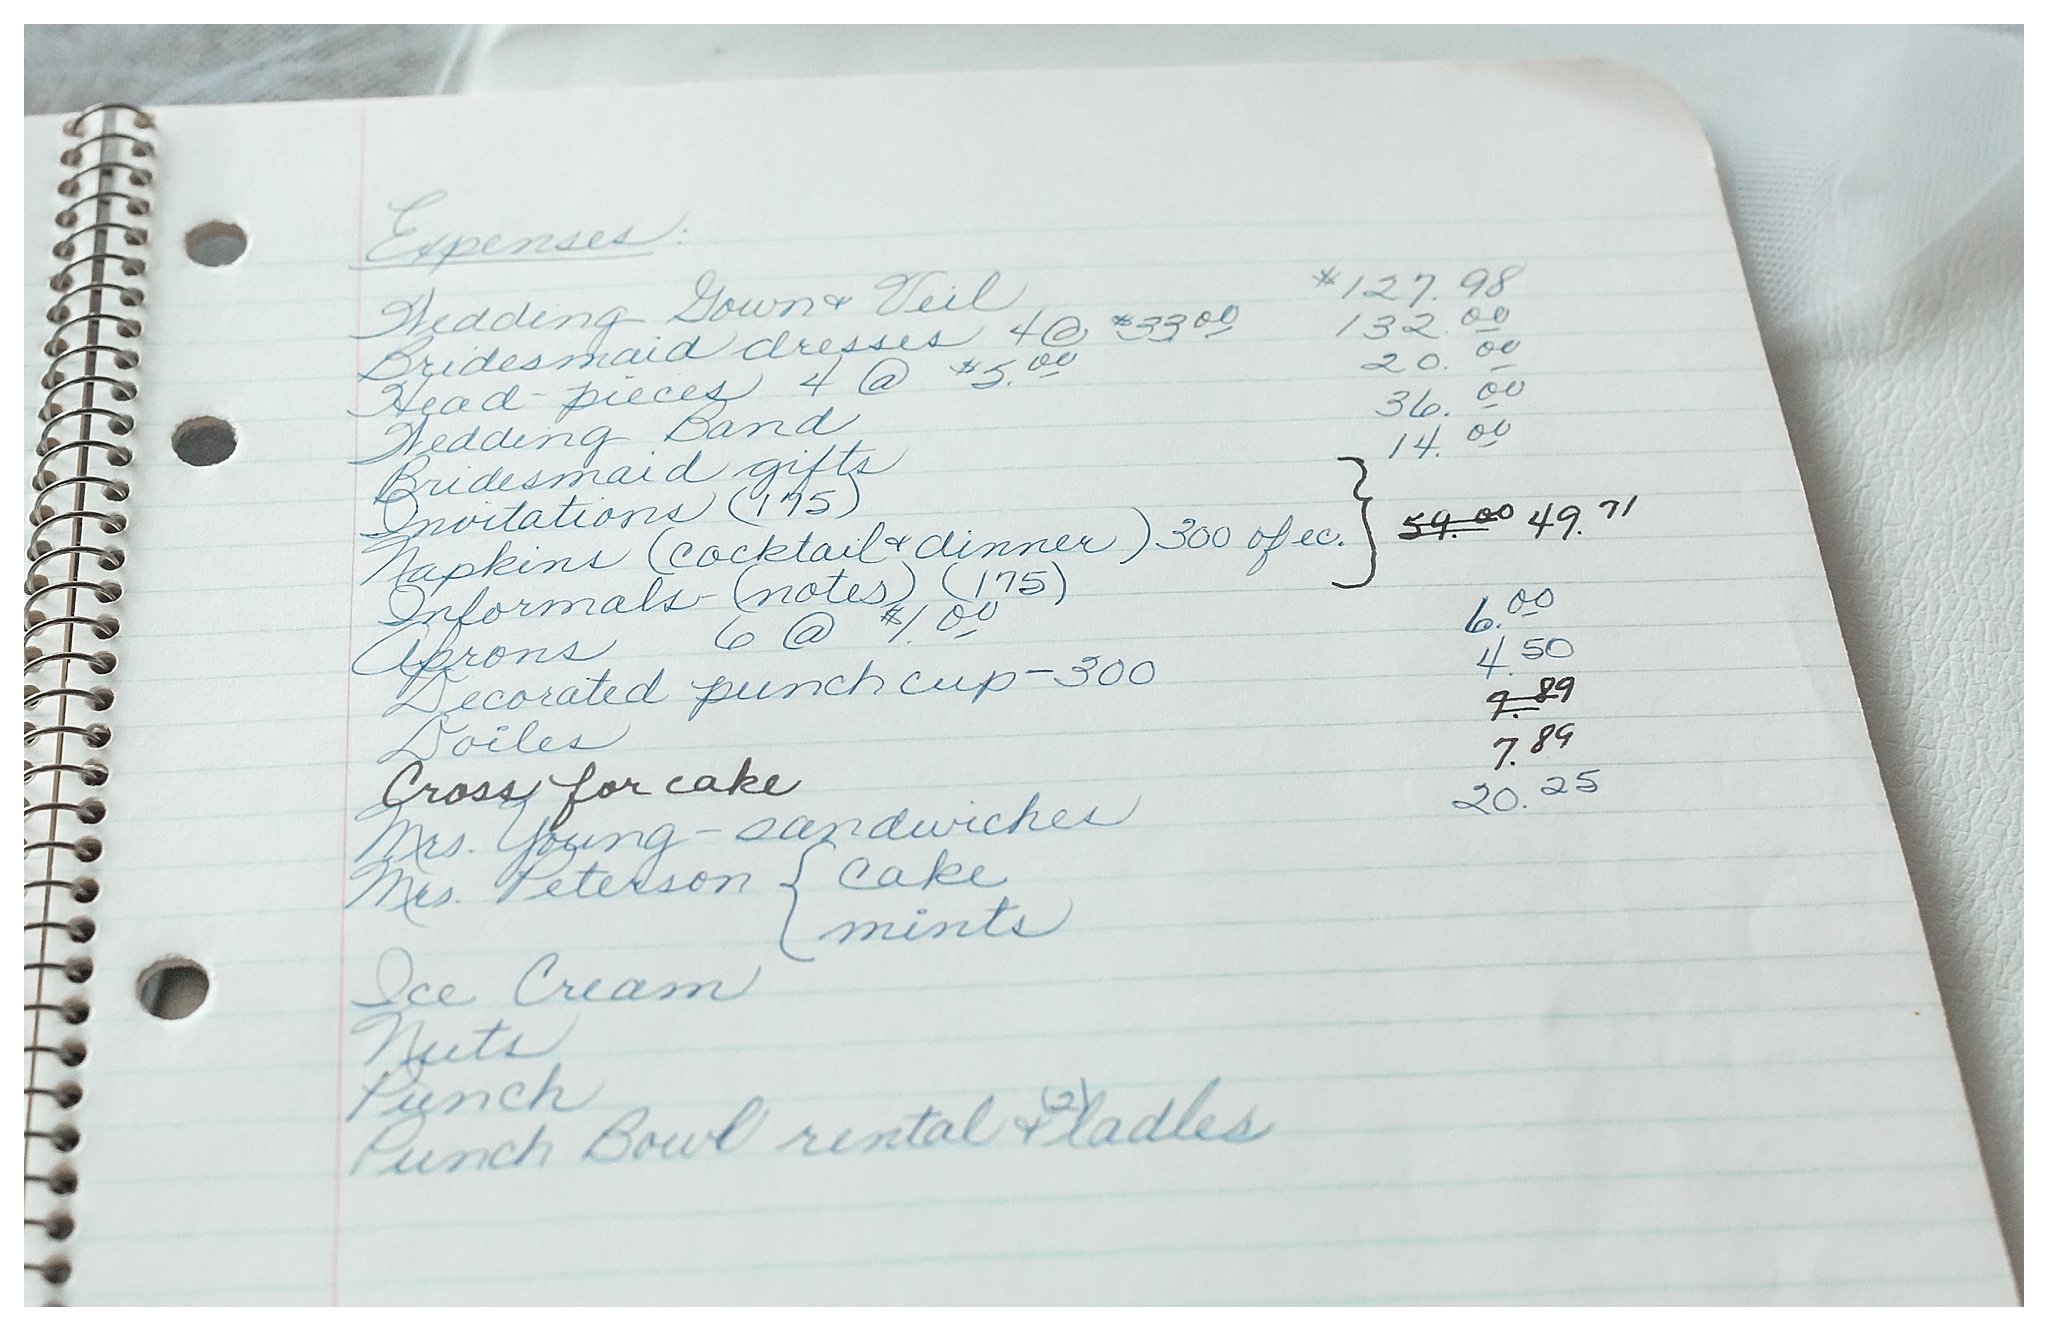 Expenses:
Wedding Gown & Veil $127.98
Bridesmaid dresses 4 @ $33.00 132.00
Head-pieces 4 @ $5.00 20.00
Wedding Band 36.00
Bridesmaid gifts 14.00
Invitations (175)
Napkins (cocktail & dinner) 300 of ec. } 59.00 49.71
Informals-(notes) (175)
Aprons 6 @ $1.00 6.00
Decorated punch cup-300 4.50
Doiles 7.89
Cross for cake 7.89
Mrs. Young-sandwiches 20.25
Mrs. Peterson { cake
mints
Ice Cream
Nuts
Punch
Punch Bowl rental & (2) ladles